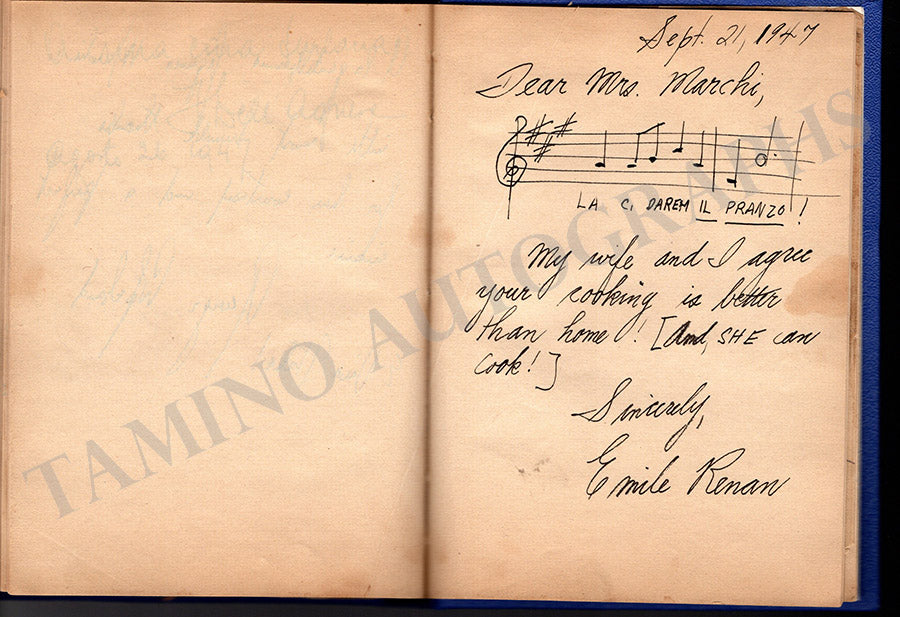 Sept. 21, 1947
Dear Mrs. Marchi,
LA CI DAREM IL PRANZO!
My wife and I agree
your cooking is better
than home! [And, SHE can
cook!]
Sincerely,
Emile Renan
TAMINO AUTOGRAPHS